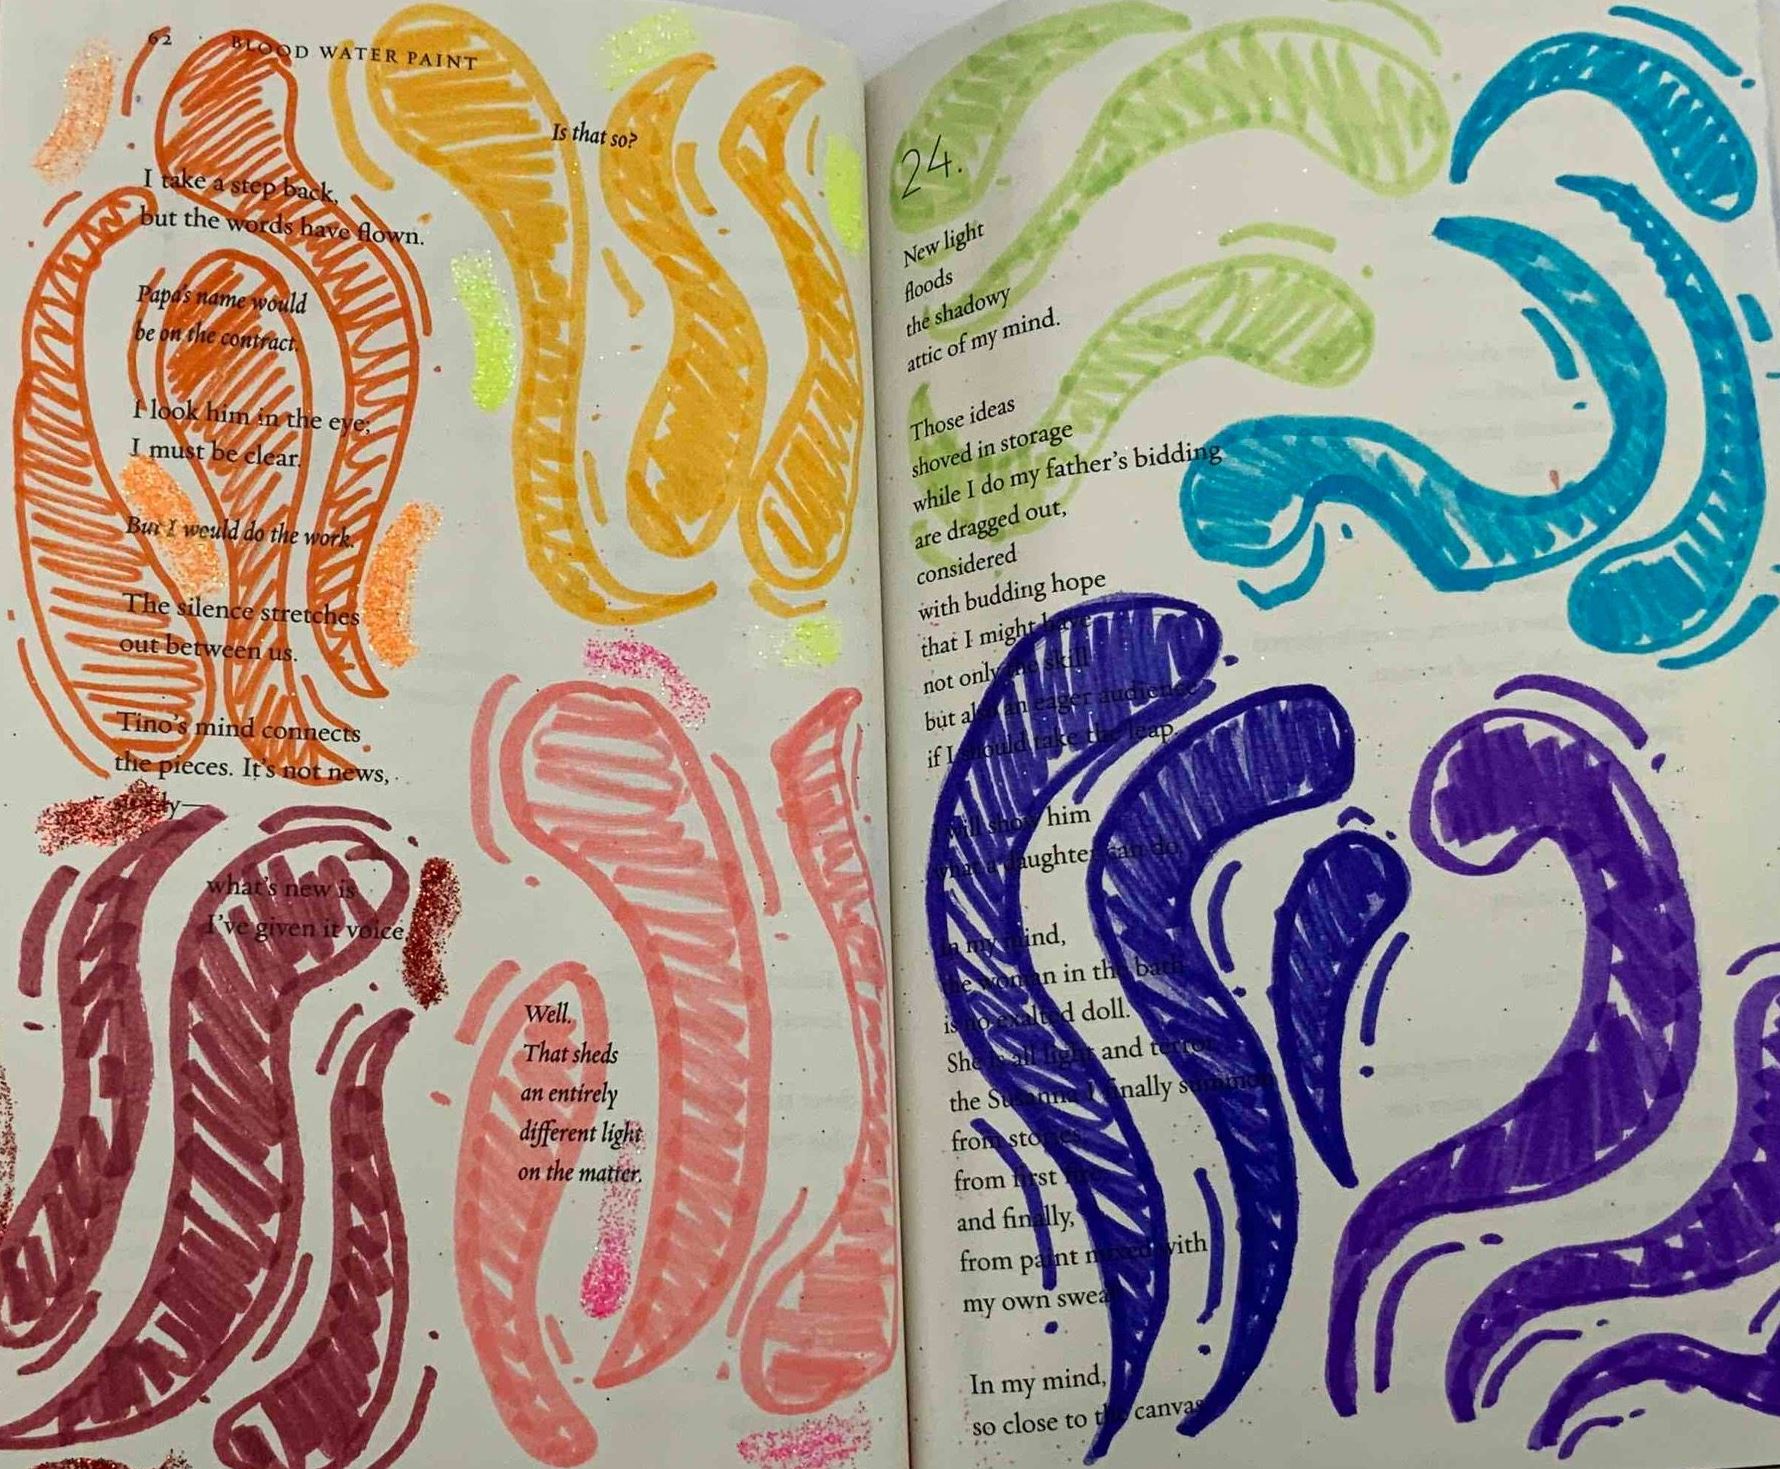 62 BLOOD WATER PAINT
Is that so?
I take a step back,
but the words have flown.
Papa's name would
be on the contract.
I look him in the eye;
I must be clear.
But I would do the work.
The silence stretches
out between us.
Tino's mind connects
the pieces. It's not news,
what's new is
I've given it voice.
Well.
That sheds
an entirely
different light
on the matter.
24.
New light
floods
the shadowy
attic of my mind.
Those ideas
shoved in storage
while I do my father's bidding
are dragged out,
considered
with budding hope
that I might have
not only the skill
but also an eager audience
if I should take the leap.
will show him
what a daughter can do.
In my mind,
the woman in the bath
is no exalted doll.
She is all light and terror
the Susanna I finally summon
from stories,
from first
and finally,
from paint mixed with
my own sweat
In my mind,
so close to the canvas